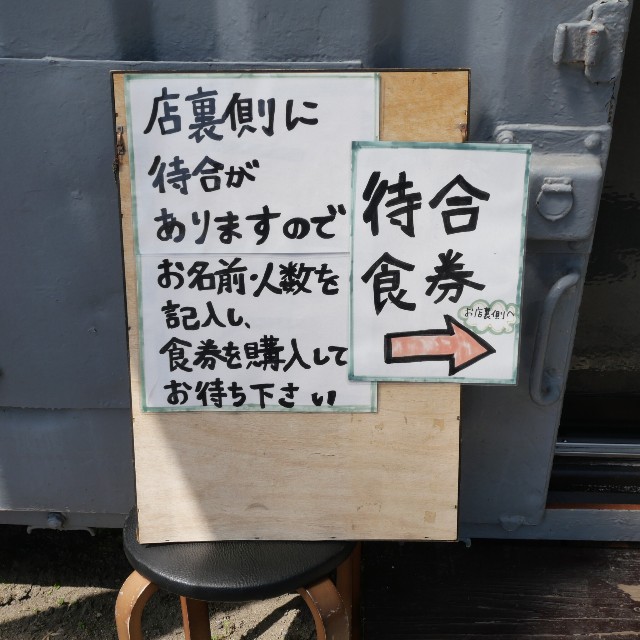 店裏側に
待合が
ありますので
お名前・人数を
記入し、
食券を購入して
お待ち下さい
待合
食券
お店裏側へ